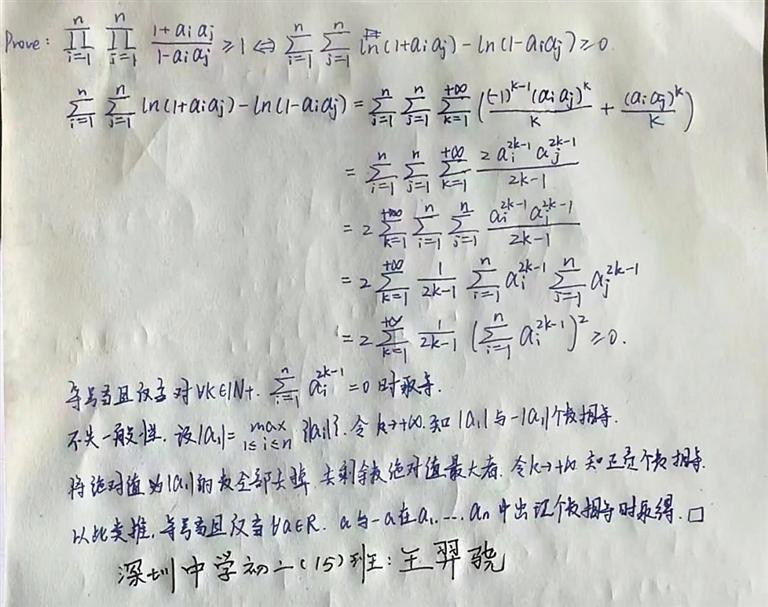 Prove: \prod_{i=1}^{n} \prod_{j=1}^{n} \frac{1+a_i a_j}{1-a_i a_j} ≥ 1 ⇔ \sum_{i=1}^{n} \sum_{j=1}^{n} ln(1+a_i a_j) - ln(1-a_i a_j) ≥ 0.
\sum_{i=1}^{n} \sum_{j=1}^{n} ln(1+a_i a_j) - ln(1-a_i a_j) = \sum_{i=1}^{n} \sum_{j=1}^{n} \sum_{k=1}^{+∞} (\frac{(-1)^{k-1}(a_i a_j)^k}{k} + \frac{(a_i a_j)^k}{k})
= \sum_{i=1}^{n} \sum_{j=1}^{n} \sum_{k=1}^{+∞} \frac{2 a_i^{2k-1} a_j^{2k-1}}{2k-1}
= 2 \sum_{k=1}^{+∞} \sum_{i=1}^{n} \sum_{j=1}^{n} \frac{a_i^{2k-1} a_j^{2k-1}}{2k-1}
= 2 \sum_{k=1}^{+∞} \frac{1}{2k-1} \sum_{i=1}^{n} a_i^{2k-1} \sum_{j=1}^{n} a_j^{2k-1}
= 2 \sum_{k=1}^{+∞} \frac{1}{2k-1} (\sum_{i=1}^{n} a_i^{2k-1})^2 ≥ 0.
等号当且仅当对∀k∈N+. \sum_{i=1}^{n} a_i^{2k-1} = 0 时取等.
不失一般性. 设|a_1| = \max_{1≤i≤n} {|a_i|}. 令 k→+∞. 知 |a_1| 与 -|a_1| 个数相等.
将绝对值为|a_1|的数全部去掉. 去剩余数绝对值最大者. 令k→+∞ 知正负个数相等.
以此类推. 等号当且仅当 ∀a∈R. a与-a在a_1, …, a_n 中出现个数相等时取得. □
深圳中学初二(15)班: 王羿骁